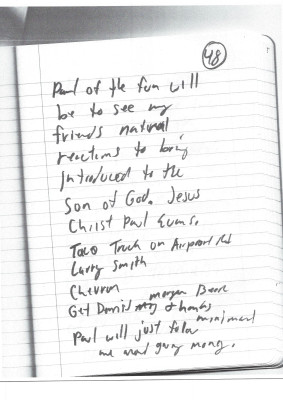 48
Paul of the fun will
be to see my
friends natural
reactions to being
introduced to the
Son of God. Jesus
Christ Paul Evans.
Taco Truck on Airport Rd
Larry Smith
Chevron
Get Daniel morgan Beare
& hanks
Paul will just follow
me and giving money.